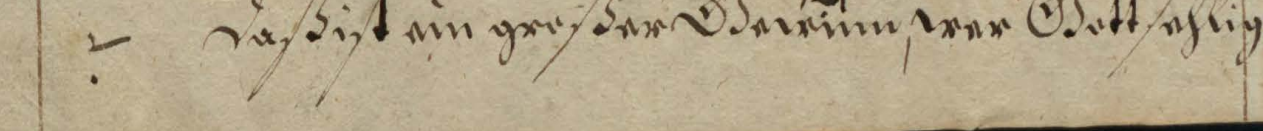 Daß ist ein großer Gewinn, wer Gottsehlig